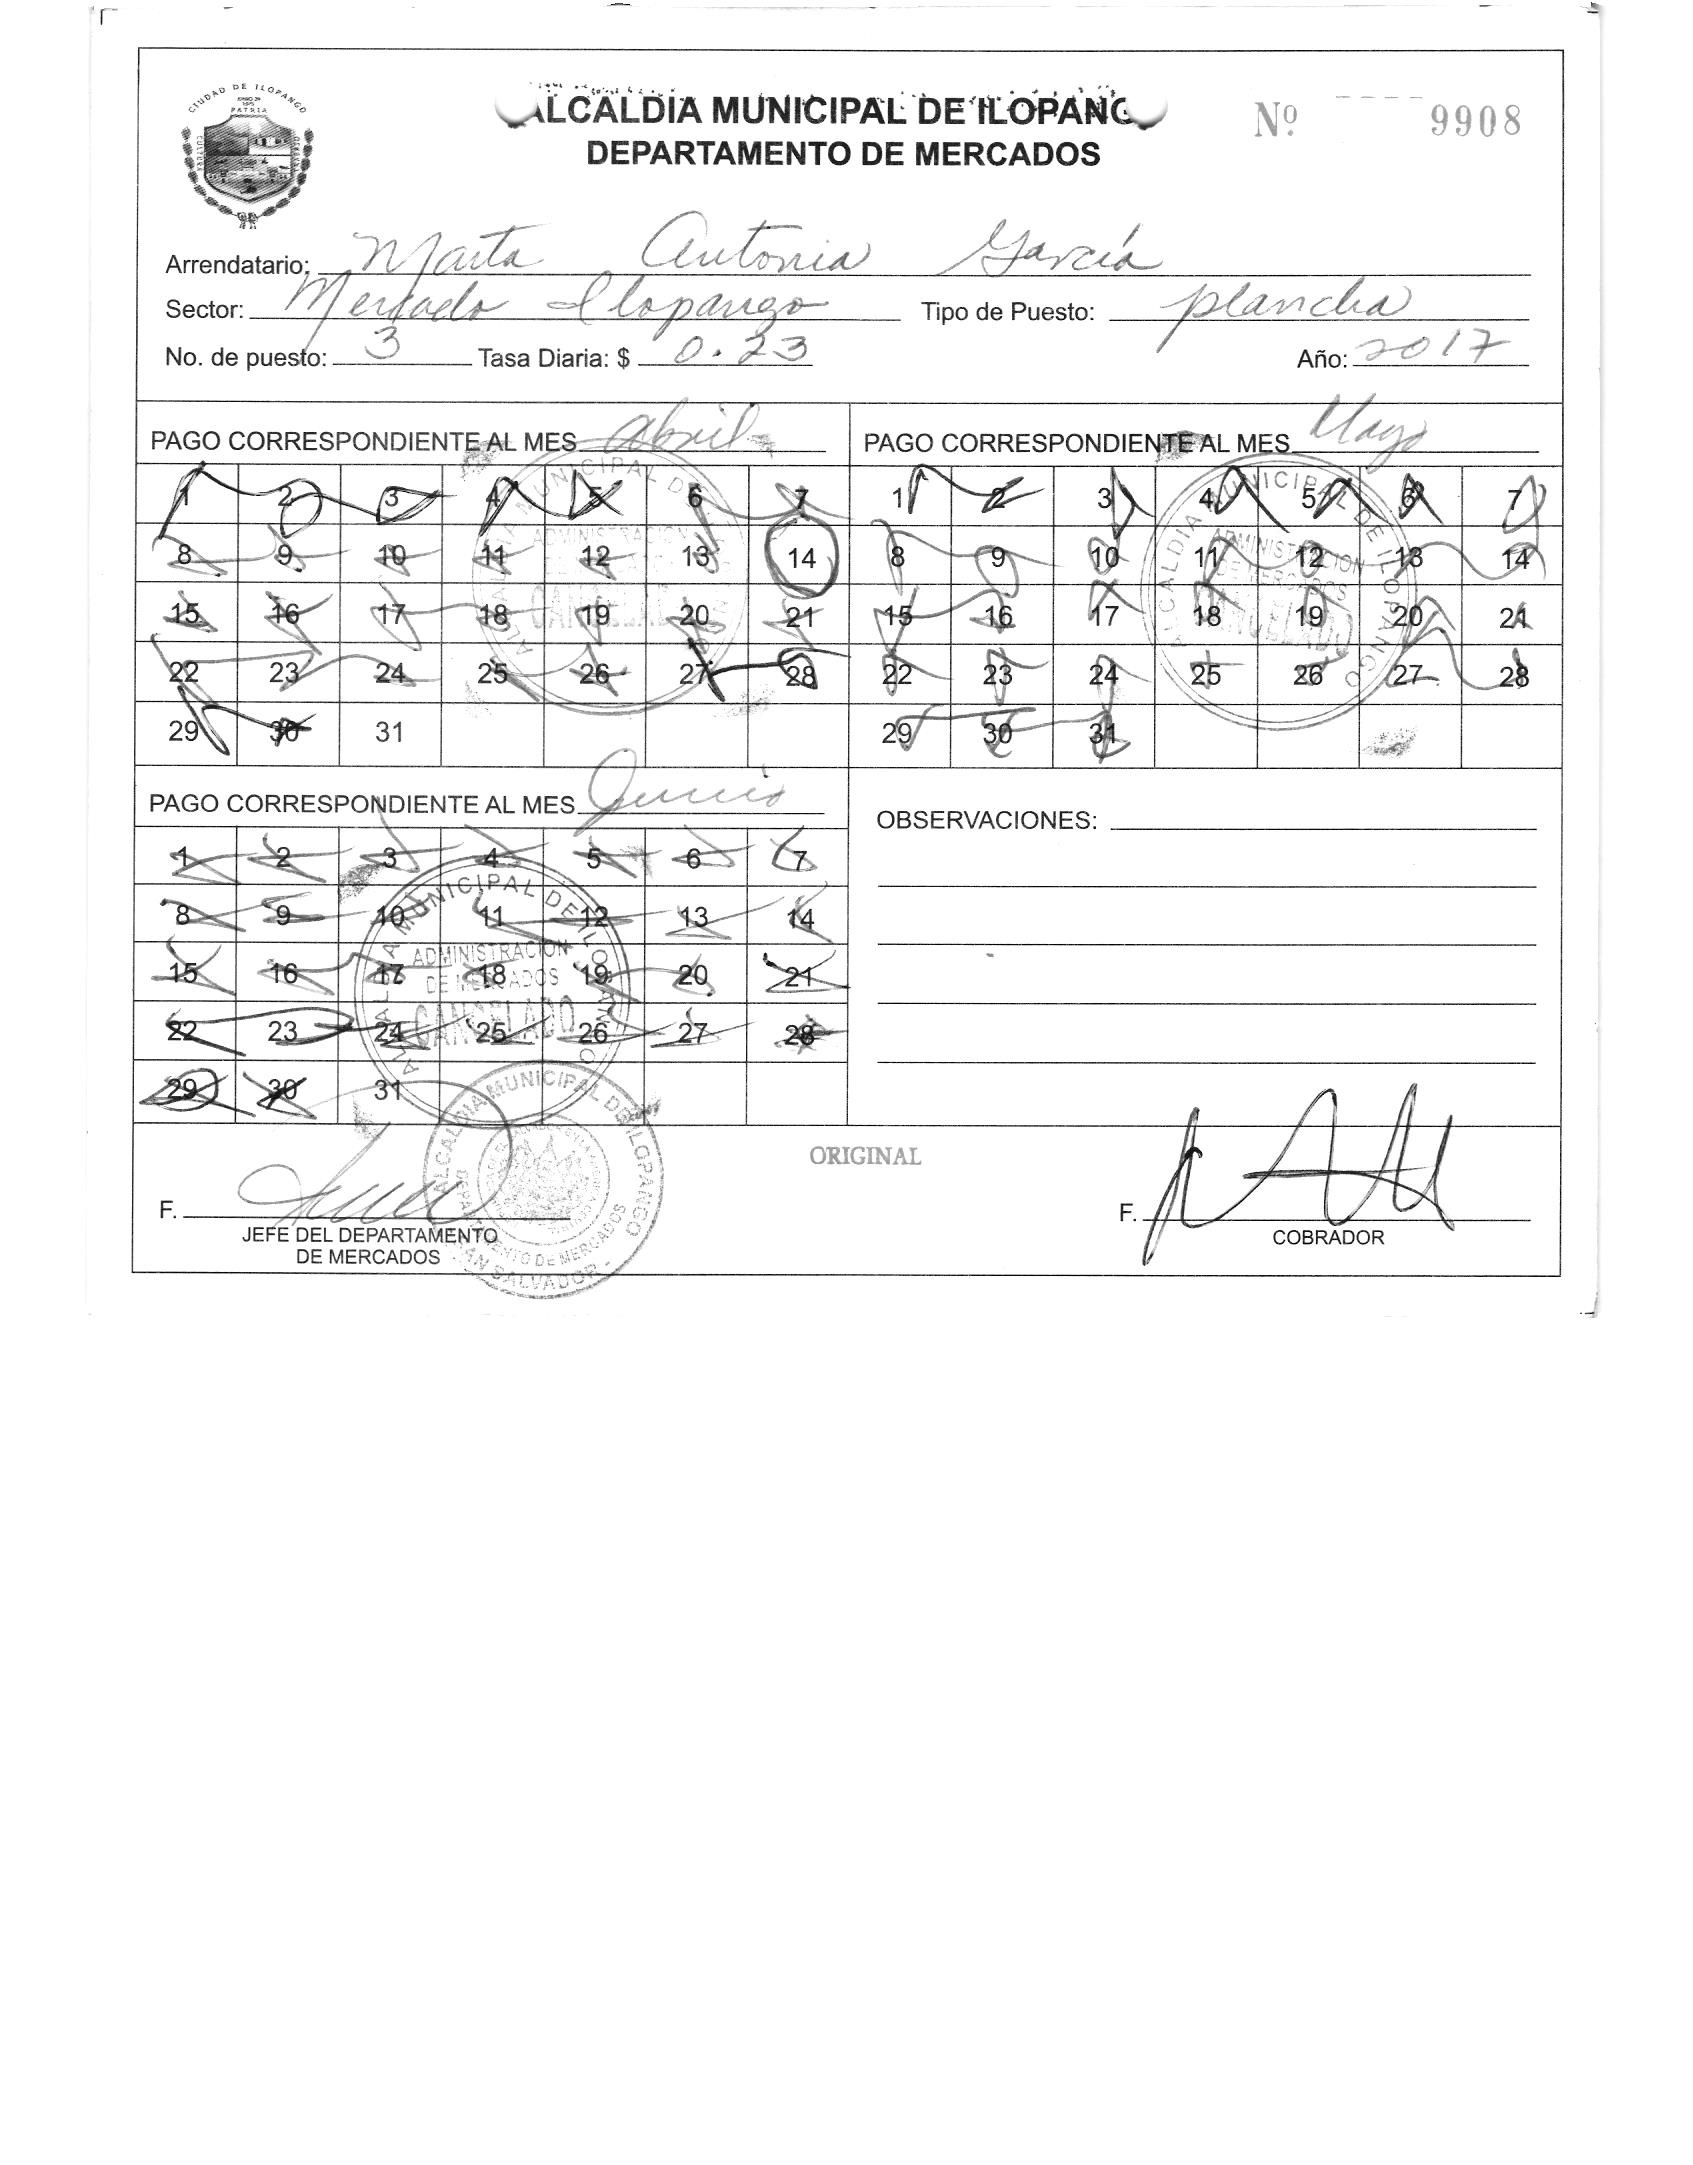 CIUDAD DE ILOPANGO
PATRIA
CULTURA
ALCALDÍA MUNICIPAL DE ILOPANG
DEPARTAMENTO DE MERCADOS
Nº 9908
Arrendatario: Marta Antonia García
Sector: Mercado Ilopango Tipo de Puesto: plancha
No. de puesto: 3 Tasa Diaria: $ 0.23 Año: 2017
PAGO CORRESPONDIENTE AL MES abril
1 2 3 4 5 6 7
8 9 10 11 12 13 14
15 16 17 18 19 20 21
22 23 24 25 26 27 28
29 30 31
ALCALDIA MUNICIPAL DE ILOPANGO
ADMINISTRACION
DE MERCADOS
CANCELADO
PAGO CORRESPONDIENTE AL MES Mayo
1 2 3 4 5 6 7
8 9 10 11 12 13 14
15 16 17 18 19 20 21
22 23 24 25 26 27 28
29 30 31
ALCALDIA MUNICIPAL DE ILOPANGO
ADMINISTRACION
DE MERCADOS
CANCELADO
PAGO CORRESPONDIENTE AL MES Junio
1 2 3 4 5 6 7
8 9 10 11 12 13 14
15 16 17 18 19 20 21
22 23 24 25 26 27 28
29 30 31
ALCALDIA MUNICIPAL DE ILOPANGO
ADMINISTRACION
DE MERCADOS
CANCELADO
OBSERVACIONES:
ORIGINAL
F.
JEFE DEL DEPARTAMENTO
DE MERCADOS
ALCALDIA MUNICIPAL DE ILOPANGO
DEPARTAMENTO DE MERCADOS
SAN SALVADOR
F.
COBRADOR